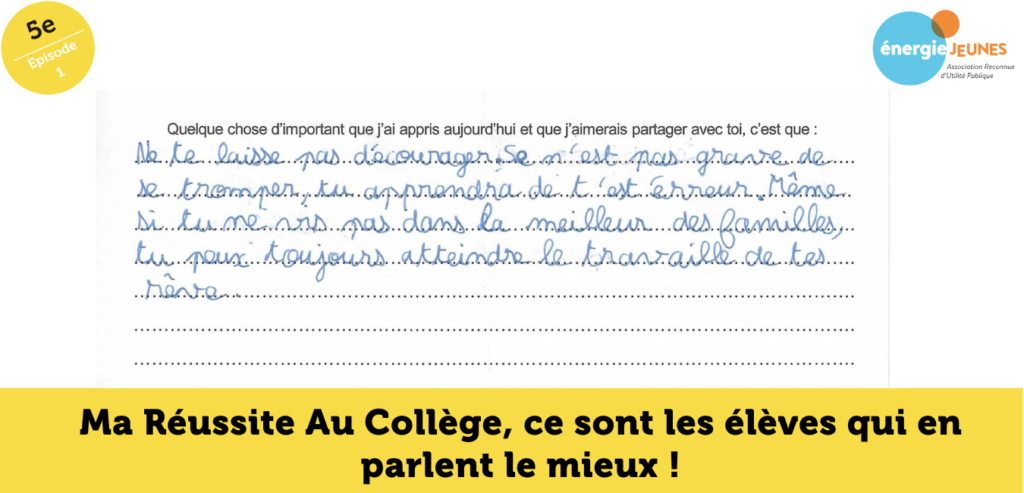 5e
Episode
1
énergie JEUNES
Association Reconnue
d'Utilité Publique
Quelque chose d'important que j'ai appris aujourd'hui et que j'aimerais partager avec toi, c'est que :
Ne te laisse pas décourager. Se n'est pas grave de
se tromper, tu apprendra de t'est érreur. Même
si tu ne vis pas dans la meilleur des familles,
tu peux toujours atteindre le travaille de tes
rêve.
Ma Réussite Au Collège, ce sont les élèves qui en
parlent le mieux !